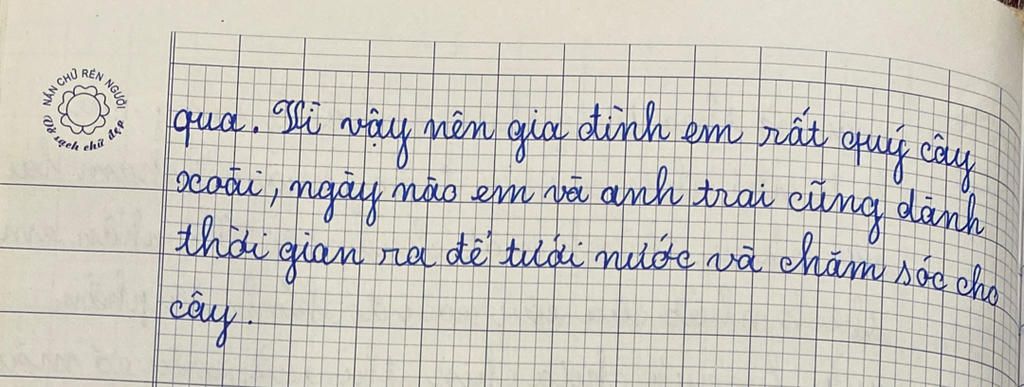 NẮN CHỮ RÈN NGƯỜI
Vở sạch chữ đẹp
qua. Vì vậy nên gia đình em rất quý cây
xoài, ngày nào em và anh trai cũng dành
thời gian ra để tưới nước và chăm sóc cho
cây.